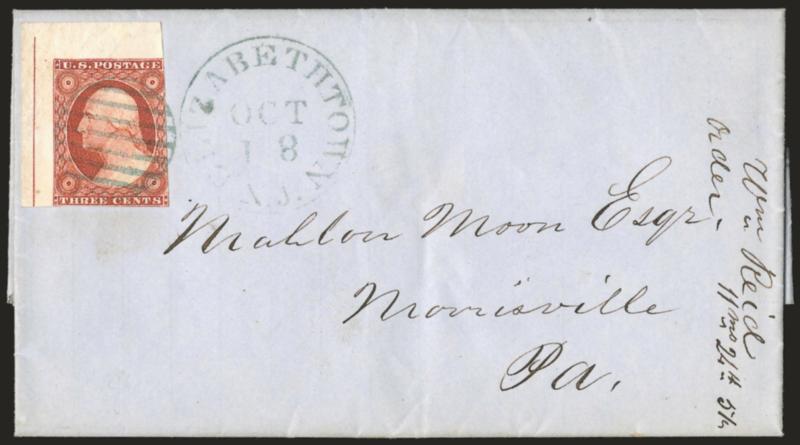 U.S. POSTAGE
THREE CENTS
ELIZABETHTOWN
OCT
18
N.J.
Mahlon Moon Esqr.
Morrisville
Pa.
Wm Reid
order,
11 mo 24th